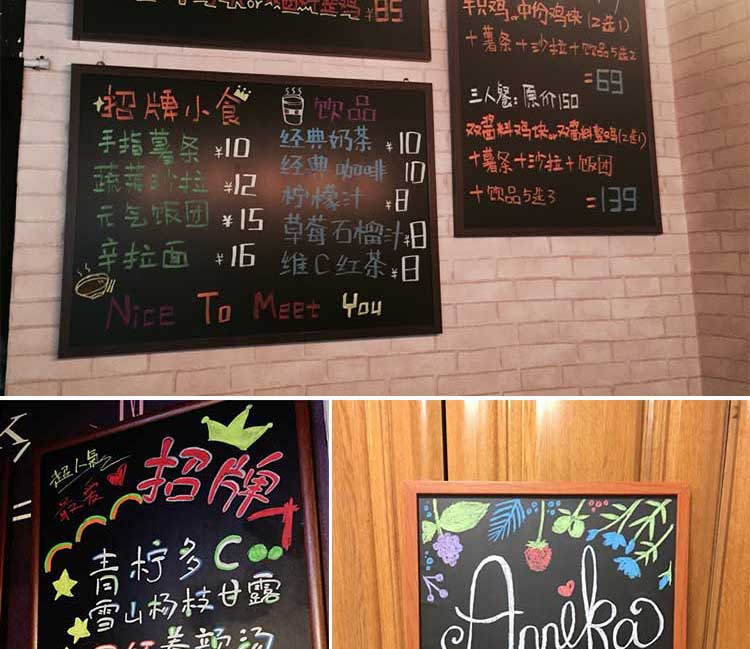 ¥85
招牌小食
手指薯条 ¥10
蔬菜沙拉 ¥12
元气饭团 ¥15
辛拉面 ¥16
饮品
经典奶茶 ¥10
经典咖啡 10
柠檬汁 ¥8
草莓石榴汁 ¥8
维C红茶 ¥8
Nice To Meet You
半只鸡or中份鸡块(2选1)
+薯条+沙拉+饮品5选2
=69
三人餐:原价150
双酱料鸡块or双酱料整鸡(2选1)
+薯条+沙拉+饭团
+饮品5选3 =139
超人氣
最爱
招牌
青柠多C
雪山杨枝甘露
养颜汤
Anneka